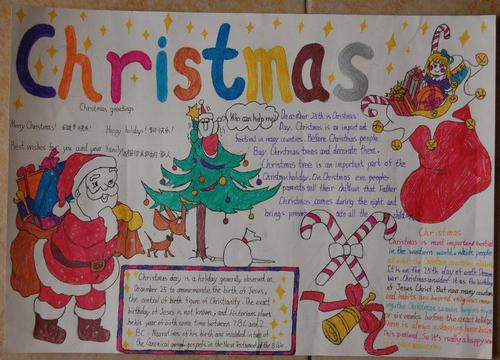 Christmas
Christmas greetings
Merry Christmas!
Happy holidays!
Best wishes for you and your family
Who can help me?
December 25th is Christmas
Day. Christmas is an important
festival in many countries. Before Christmas people
Buy Christmas trees and decorate them.
Christmas tree is an important part of the
Christmas holiday. On Christmas eve, people
parents tell their children that Father
Christmas comes during the night and
brings presents
Christmas day is a holiday generally observed on
December 25 to commemorate the birth of Jesus,
the central figure of Christianity. The exact
birthday of Jesus is not known, and historians place
his year of birth some time between 7BC and 2
BC. Narratives of his birth are included in two of
the canonical gospels in the New Testament of the Bible
Christmas
Christmas is most important festival
in the western world.
It is on the 25th day of
as the birthday
of Jesus Christ. But now many customs
and habits are beyond religious
the Christmas season begins
or six weeks before the exact holiday
there is always a shopping
This period. So it's really a happy